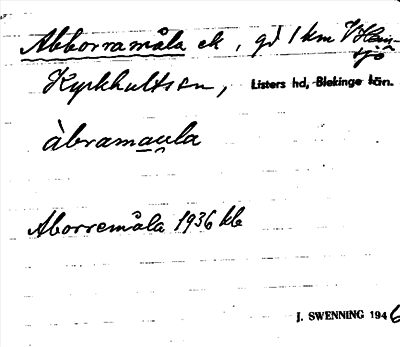 Abborramåla ek, gd 1 km V Häm-
sjö
Kyrkhults sn, Listers hd, Blekinge län.
àbramau̯la
Aborremåla 1936 kb
J. SWENNING 1946